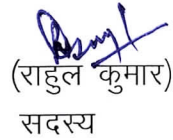 (राहुल कुमार)
सदस्य